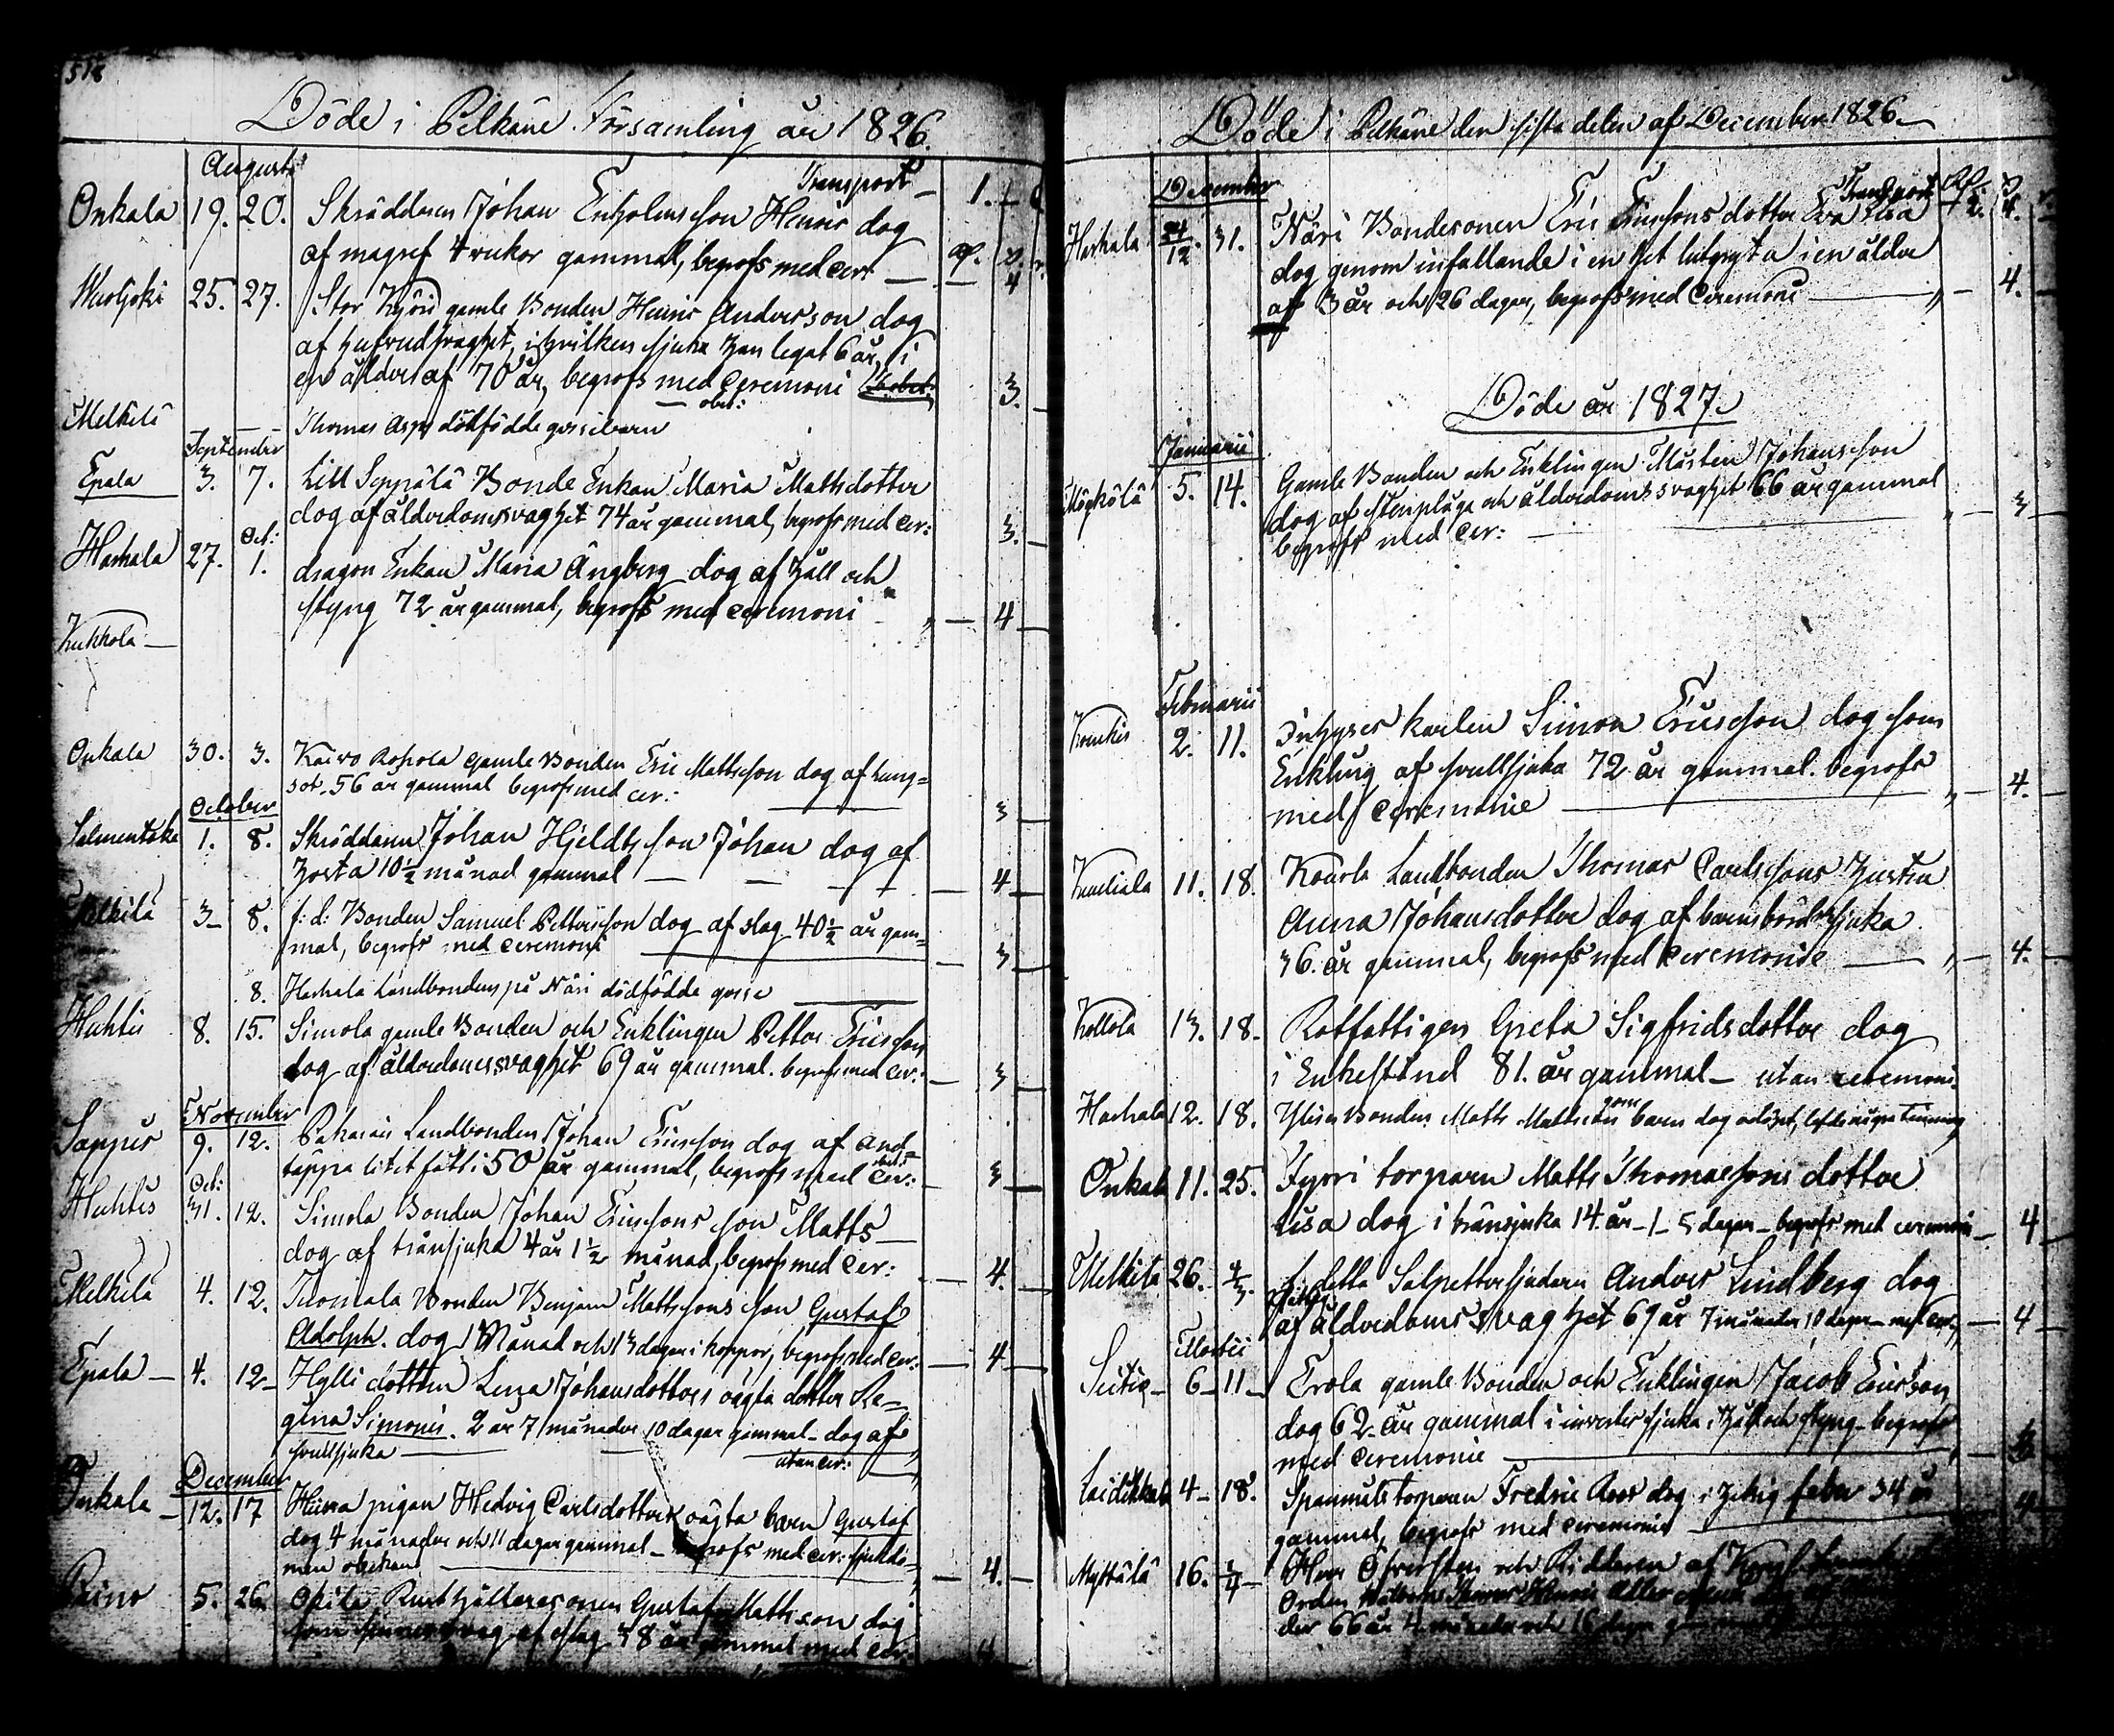 Döde i Pelkäne Församling år 1826.
Augusti
Transport
Onkala 19. 20. Skräddaren Johan Enholms son Henric dog 1.
af magref 4 veckor gammal, begrofs med cer 4
25. 27. Stor Kyörö gamle Bonden Henric Andersson dog
af hufvudsvaghet, i hvilken sjuka han legat 6 år, i
en ålder af 70 år, begrofs med Ceremoni 3.
obet:
Mälkilä Thomas Asps dödfödde gossebarn
September
Epala 3. 7. Lill Seppälä Bonde Enkan Maria Mattsdotter
dog af ålderdomssvaghet 74 år gammal, begrofs med Cer: 3.
Oct:
Harhala 27. 1. dragon Enkan Maria Ängberg dog af håll och
styng 72 år gammal, begrofs med Ceremoni 4
Kukkola
Onkala 30. 3. gamle Bonden Eric Mattsson dog af lung-
sot. 56 år gammal begrofs med cer: 3
October
Salmentaka 1. 8. Skräddaren Johan Hjeldts son Johan dog af
hosta 10½ månad gammal 4
3 8. f: d: Bonden Samuel Pettersson dog af slag 40½ år gam-
mal, begrofs med ceremoni 3
8. Harhala Landbondens på Näri dödfödde gosse
Huhtis 8. 15. Simola gamle Bonden och Enklingen Petter Ericsson
dog af ålderdomssvaghet 69 år gammal. begrofs med cer: 3
November
Sappee 9. 12. Landbonden Johan Ericsson dog af and-
täppa 50 år gammal, begrofs med Cer: 3
Oct:
Huhtis 31. 12. Simola Bonden Johan Ericssons son Matts
dog af tränsjuka 4 år 1½ månad, begrofs med cer: 4.
Mälkilä 4. 12. Tuomala Bonden Benjam Mattssons son Gustaf
Adolph. dog 1 Månad och 13 dagar i koppor, begrofs med cer: 4
Epala 4. 12 Hylli dottren Lena Johansdotters oägta dotter Re-
gina Simonis. 2 år 7 månader 10 dagar gammal dog af
svullsjuka utan cer:
December
Onkala 12. 17 pigan Hedvig Carlsdotters oägta barn Gustaf
dog 4 månader och 11 dagar gammal begrofs med cer: sjukdo-
men obekant 4.
5. 26. Rusthållaresonen Gustaf Mattsson dog
af slag 38 år gammal med cer: 4
Döde i Pelkäne den sista delen af December 1826
December
Transport
Harhala 24/12. 31. Näri Bondesonen Eric Ericssons dotter Eva Lisa
dog genom infallande i en het lutgryta i en ålder
af 3 år och 26 dagar, begrofs med Ceremoni 4.
Döde år 1827.
Januarii
5. 14. Gamle Bonden och Enklingen Mårten Johansson
dog af stenplåga och ålderdomssvaghet 66 år gammal 3
begrofs med Cer:
Februarii
2. 11. Inhyses karlen Simon Ericsson dog som
Enkling af svullsjuka 72 år gammal. begrofs
med Ceremonie 4.
11. 18. Landbonden Thomas Carlssons hustru
Anna Johansdotter dog af barnsbördssjuka
36. år gammal, begrofs med Ceremonie 4.
Kollola 13. 18. Rotfattigen Greta Sigfridsdotter dog
i Enkestånd 81. år gammal utan ceremoni
Harhala 12. 18. Bonden Matts Mattssons barn dog odöpt, lefde några timmar
Onkala 11. 25. torparen Matts Thomassons dotter
Lisa dog i tränsjuka 14 år 1 5 dagar begrofs med ceremoni 4
Mälkilä 26. 4/3. f: detta Salpettersjudaren Anders Lindberg dog
af ålderdoms svaghet 69 år 7 månader 10 dagar med cer: 4
Martii
6 11 Erola gamle Bonden och Enklingen Jacob Ericsson
dog 62 år gammal i invertes sjuka, håll och styng begrofs
med ceremonie
Laidikkala 4 18. torparen Fredric Roos dog i hetsig feber 34 år
gammal, begrofs med ceremonie 4
Myttälä 16. 1/4 Herr Öfversten och Riddaren af Kongl.
Orden
der 66 år 4 månader och 16 dagar